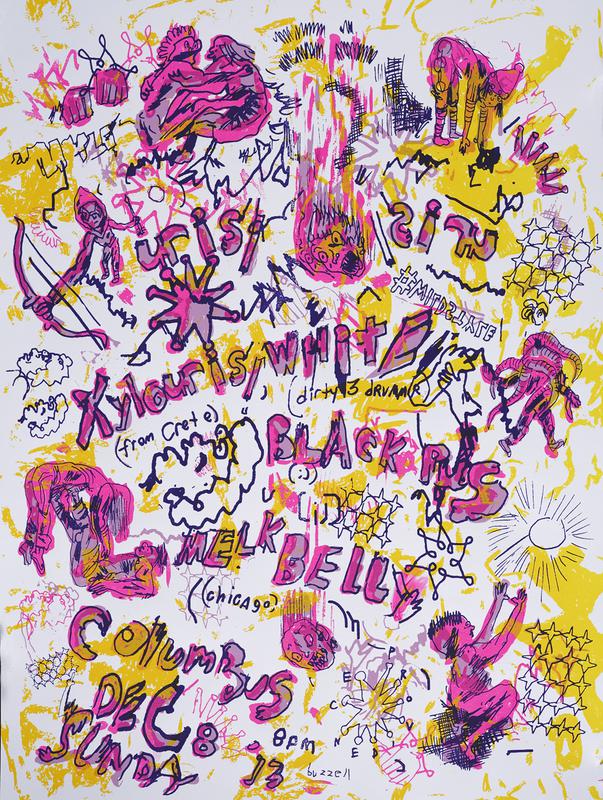 uris/
Xylouris/WHitE
(dirty 3
(from Crete)
BLACK PUS
MELK
BELLY
((chicago)
Columbus
DEC 8. 8pm
SUNDAY 13
buzzell